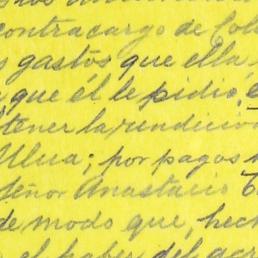 contracargo de
gastos que ella
que él le pidió,
tener la rendición
Ulua; por pagos
Señor Anastacio
de modo que, hech
el haber del acr